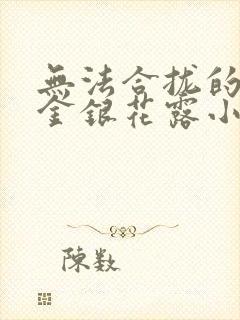 無法合拢的
金銀花露小
陳数